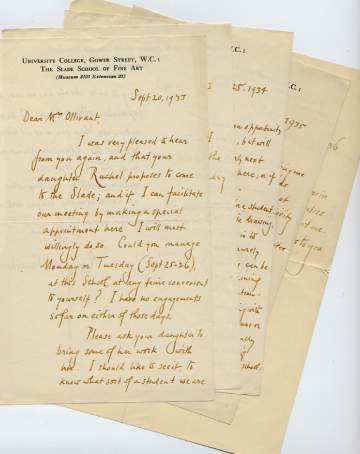 UNIVERSITY COLLEGE, GOWER STREET, W.C.1
THE SLADE SCHOOL OF FINE ART
Sept 20, 1933
Dear Mrs Ollivant
I was very pleased to hear
from you again, and that your
daughter Rachel proposes to come
to the Slade; and if I can facilitate
our meeting by making a special
appointment here I will most
willingly do so. Could you manage
Monday or Tuesday (Sept 25-26),
at this School, at any time convenient
to yourself? I have no engagements
so far on either of those days.
Please ask your daughter to
bring some of her work with
her. I should like to see it, to
know what sort of a student we are
W.C.1
25. 1934
opportunity
but will
next
here, if
student
leaving
can be
with
school.
1935
to you